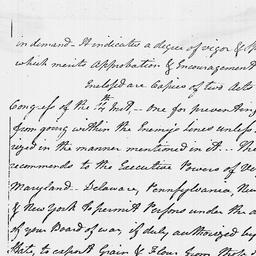 in demand - It indicates a degree of vigor &
which merits Approbation & Encouragement
Enclosed are Copies of two Acts
Congress of the Inst. - One for preventing
from going within the Enemy's Lines unless
in the manner mentioned in it - The
recommends to the Executive Powers of
Maryland - Delaware, Pennsylvania, New
& New York to permit Persons under the
of your Board of war, if duly authorized by
State, to export Grain & Flour from those